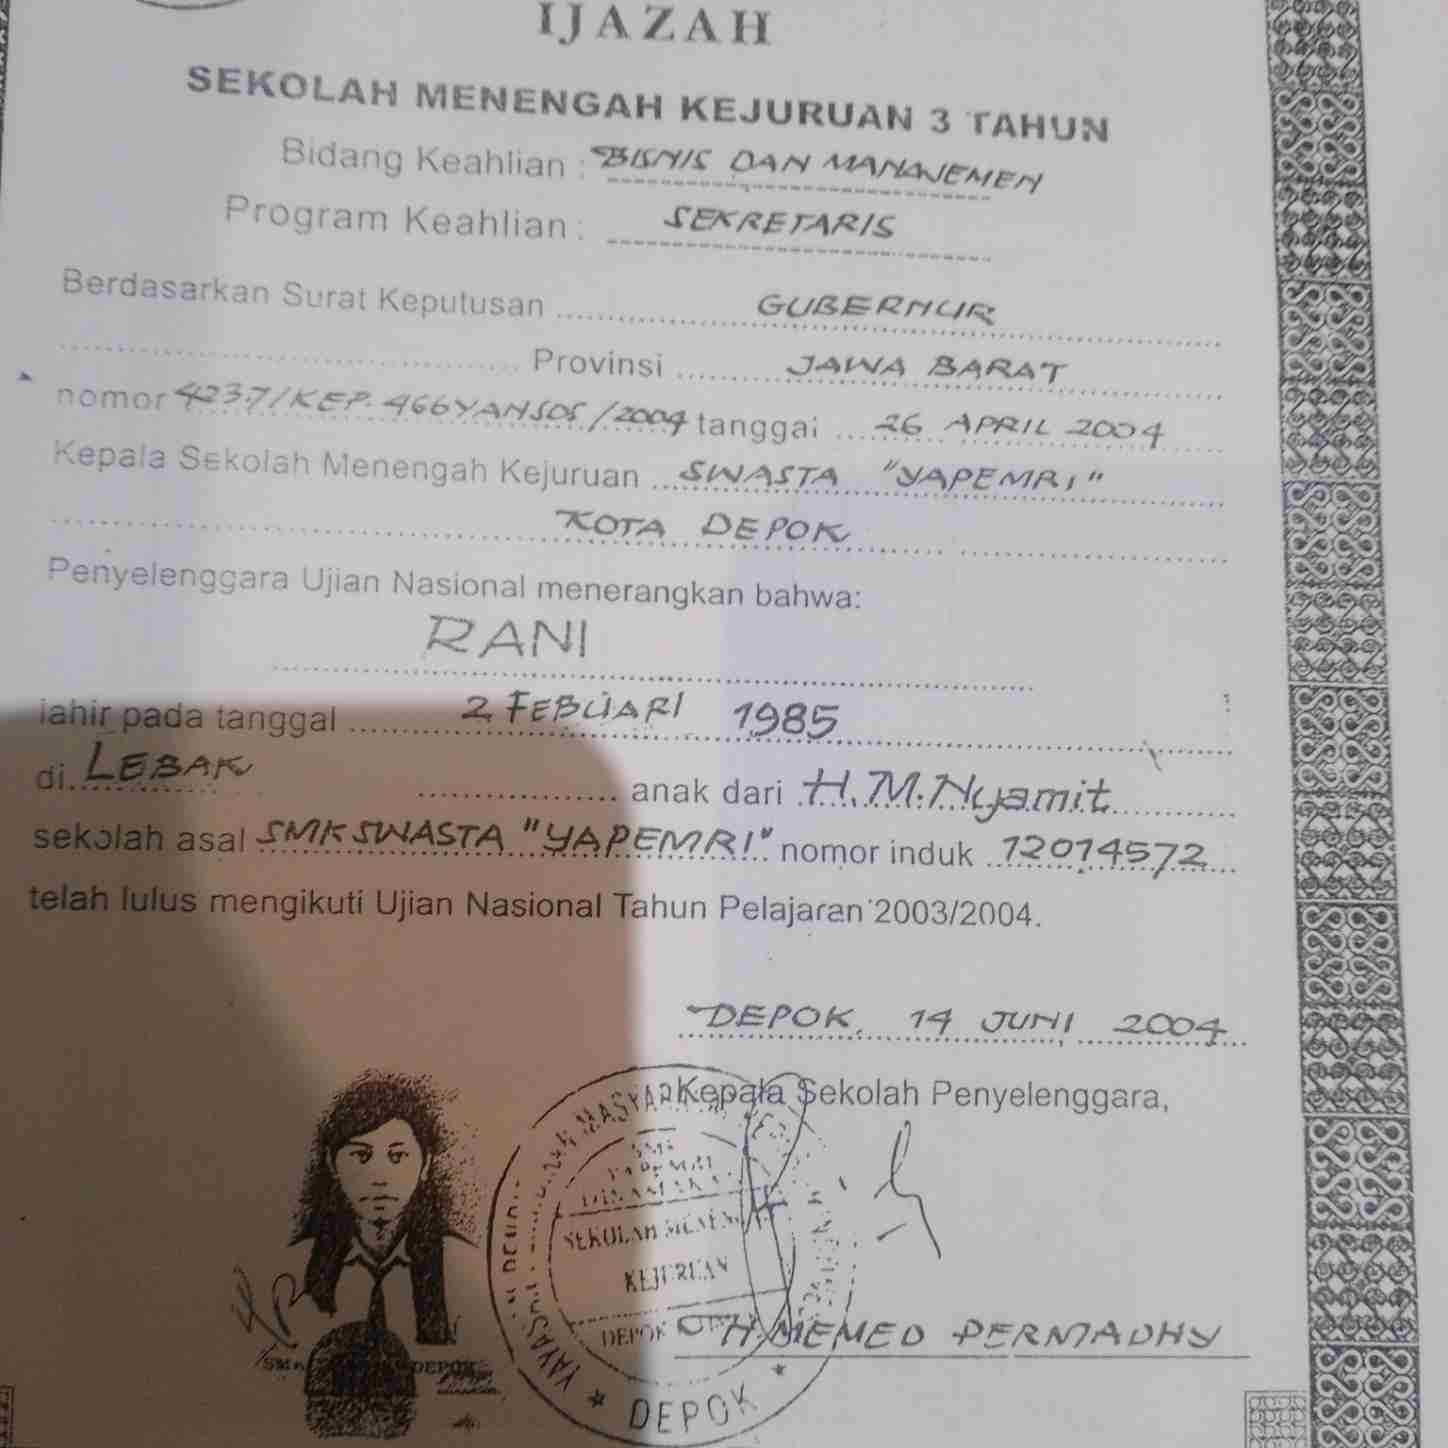 IJAZAH
SEKOLAH MENENGAH KEJURUAN 3 TAHUN
Bidang Keahlian : BISNIS DAN MANAJEMEN
Program Keahlian : SEKRETARIS
Berdasarkan Surat Keputusan GUBERNUR
Provinsi JAWA BARAT
nomor 4237/KEP.466YANSOS/2004 tanggal 26 APRIL 2004
Kepala Sekolah Menengah Kejuruan SWASTA "YAPEMRI"
KOTA DEPOK
Penyelenggara Ujian Nasional menerangkan bahwa:
RANI
lahir pada tanggal 2 FEBUARI 1985
di LEBAK anak dari H.M.Nyamit
sekolah asal SMK SWASTA "YAPEMRI" nomor induk 12014572
telah lulus mengikuti Ujian Nasional Tahun Pelajaran 2003/2004.
DEPOK, 14 JUNI 2004
Kepala Sekolah Penyelenggara,
SEKOLAH
KEJURUAN
DEPOK
H.MEMED PERMADHY
SMK DEPOK
* DEPOK *